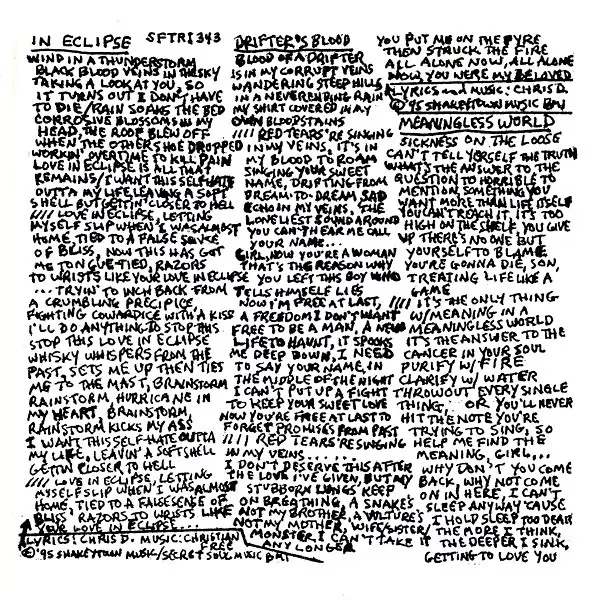 IN ECLIPSE SFTRI 343
WIND IN A THUNDERSTORM
BLACK BLOOD VEINS IN THE SKY
TAKING A LOOK AT YOU, SO
IT TURNS OUT I DON'T HAVE
TO DIE/RAIN SOAKS THE BED
CORROSIVE BLOSSOMS IN MY
HEAD, THE ROOF BLEW OFF
WHEN THE OTHER SHOE DROPPED
WORKIN' OVERTIME TO KILL PAIN
LOVE IN ECLIPSE IS ALL THAT
REMAINS/I WANT THIS SELF-HATE
OUTTA MY LIFE, LEAVING A SOFT
SHELL BUT GETTIN' CLOSER TO HELL
//// LOVE IN ECLIPSE, LETTING
MYSELF SLIP WHEN I WAS ALMOST
HOME, TIED TO A FALSE SENSE
OF BLISS, NOW THIS HAS GOT
ME TONGUE-TIED, RAZORS
TO WRISTS LIKE YOUR LOVE IN ECLIPSE
... TRYIN' TO INCH BACK FROM
A CRUMBLING PRECIPICE,
FIGHTING COWARDICE WITH A KISS
I'LL DO ANYTHING TO STOP THIS
STOP THIS LOVE IN ECLIPSE
WHISKY WHISPERS FROM THE
PAST, SETS ME UP THEN TIES
ME TO THE MAST, BRAINSTORM
RAINSTORM, HURRICANE IN
MY HEART, BRAINSTORM,
RAINSTORM KICKS MY ASS
I WANT THIS SELF-HATE OUTTA
MY LIFE, LEAVIN' A SOFT SHELL
GETTIN CLOSER TO HELL
//// LOVE IN ECLIPSE, LETTING
MYSELF SLIP WHEN I WAS ALMOST
HOME, TIED TO A FALSE SENSE OF
BLISS RAZORS TO WRISTS LIKE
YOUR LOVE IN ECLIPSE...
LYRICS: CHRIS D. MUSIC: CHRISTIAN
FREE
© '95 SHAKEYTOWN MUSIC/SECRET SOUL MUSIC BMI
DRIFTER'S BLOOD
BLOOD OF A DRIFTER
IS IN MY CORRUPT VEINS
WANDERING STEEP HILLS
IN A NEVERENDING RAIN
MY SHIRT COVERED IN MY
OWN BLOODSTAINS
//// RED TEARS'RE SINGING
IN MY VEINS, IT'S IN
MY BLOOD TO ROAM
SINGING YOUR SWEET
NAME, DRIFTING FROM
DREAM-TO-DREAM SAD
ECHO IN MY VEINS, THE
LONELIEST SOUND AROUND
YOU CAN'T HEAR ME CALL
YOUR NAME...
GIRL, NOW YOU'RE A WOMAN
THAT'S THE REASON WHY
YOU LEFT THIS BOY WHO
TELLS HIMSELF LIES
NOW I'M FREE AT LAST,
A FREEDOM I DON'T WANT
FREE TO BE A MAN, A NEW
LIFE TO HAUNT, IT SPOOKS
ME DEEP DOWN, I NEED
TO SAY YOUR NAME, IN
THE MIDDLE OF THE NIGHT
I CAN'T PUT UP A FIGHT
TO KEEP YOUR SWEET LOVE
NOW YOU'RE FREE AT LAST TO
FORGET PROMISES FROM PAST
//// RED TEARS'RE SINGING
IN MY VEINS.......
I DON'T DESERVE THIS AFTER
THE LOVE I'VE GIVEN, BUT MY
STUBBORN LUNGS KEEP
ON BREATHING, A SNAKE'S
NOT MY BROTHER, A VULTURE'S
NOT MY MOTHER, WIFE/SISTER/
MONSTER I CAN'T TAKE IT
ANY LONGER
YOU PUT ME ON THE PYRE
THEN STRUCK THE FIRE
ALL ALONE NOW, ALL ALONE
NOW, YOU WERE MY BELOVED
LYRICS AND MUSIC: CHRIS D.
© '95 SHAKEYTOWN MUSIC BMI
MEANINGLESS WORLD
SICKNESS ON THE LOOSE
CAN'T TELL YOURSELF THE TRUTH
WHAT'S THE ANSWER TO THE
QUESTION TO HORRIBLE TO
MENTION, SOMETHING YOU
WANT MORE THAN LIFE ITSELF
YOU CAN'T REACH IT, IT'S TOO
HIGH ON THE SHELF, YOU GIVE
UP THERE'S NO ONE BUT
YOURSELF TO BLAME
YOU'RE GONNA DIE, SON,
TREATING LIFE LIKE A
GAME
//// IT'S THE ONLY THING
W/MEANING IN A
MEANINGLESS WORLD
IT'S THE ANSWER TO THE
CANCER IN YOUR SOUL
PURIFY W/FIRE
CLARIFY W/ WATER
THROW OUT EVERY SINGLE
THING... OR YOU'LL NEVER
HIT THE NOTE YOU'RE
TRYING TO SING, SO
HELP ME FIND THE
MEANING, GIRL,...
WHY DON'T YOU COME
BACK, WHY NOT COME
ON IN HERE, I CAN'T
SLEEP ANYWAY 'CAUSE
I HOLD SLEEP TOO DEAR
THE MORE I THINK,
THE DEEPER I SINK,
GETTING TO LOVE YOU